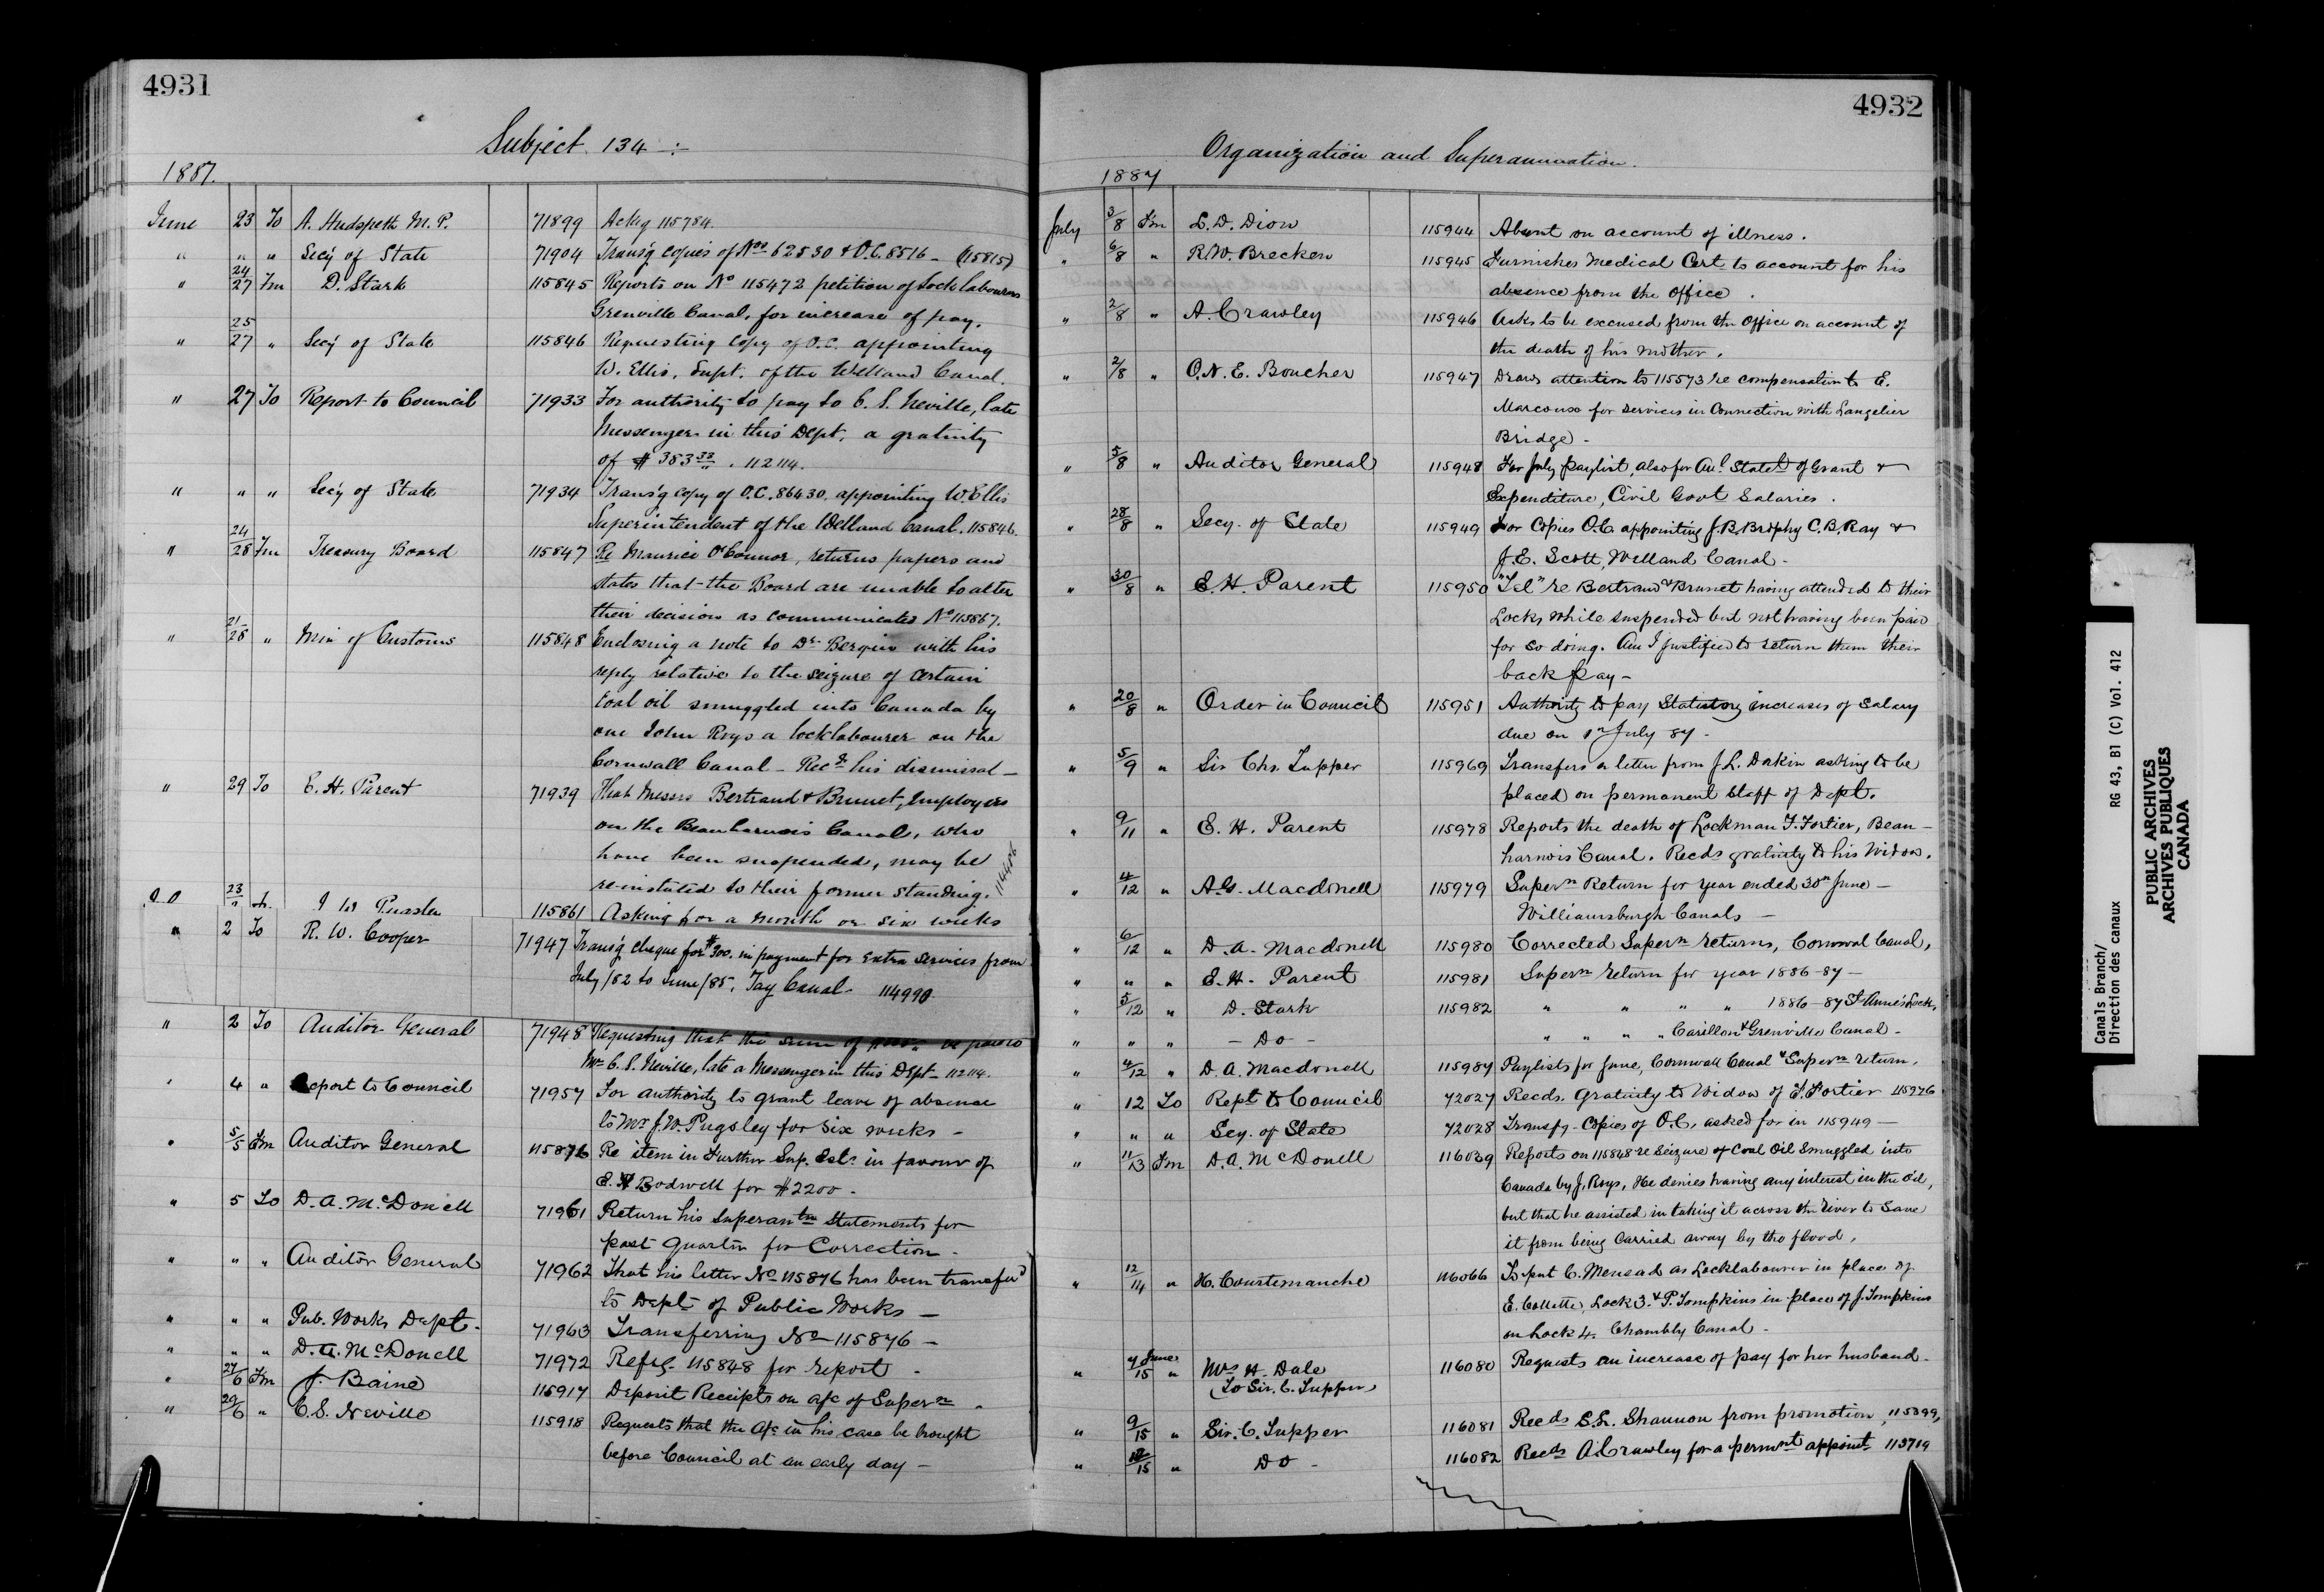 4931
Subject 134 :-
1887.
June 23 To A. Hudspeth M.P. 71899 Ackg 115784.
" " " Sec'y of State 71904 Transg copies of Nos 62530 & O.C. 8516 - (115815)
" 24/27 Fm D. Stark 115845 Reports on No 115472 petition of Lock labourers
Grenville Canal, for increase of pay.
" 25/27 " Sec'y of State 115846 Requesting copy of O.C. appointing
W. Ellis, Supt. of the Welland Canal.
" 27 To Report to Council 71933 For authority to pay to C. S. Neville, late
Messenger in this Dept. a gratuity
of $ 383 33/" . 112114.
" " " Sec'y of State 71934 Trans'g copy of O.C. 86430. appointing W Ellis
Superintendent of the Welland Canal. 115846.
" 24/28 Fm Treasury Board 115847 Re Maurice O'Connor, returns papers and
states that the Board are unable to alter
their decision as communicated No 115867.
" 21/28 " Min of Customs 115848 Enclosing a note to Dr Bergin with his
reply relative to the seizure of certain
Coal oil smuggled into Canada by
one John Roys a locklabourer on the
Cornwall Canal - Recds his dismissal -
" 29 To E. H. Parent 71939 That Messrs Bertrand & Brunet, Employees
on the Beauharnois Canal, who
have been suspended, may be
re-instated to their former standing. 114406
23/" 115861 Asking for a month or six weeks
" 2 To R. W. Cooper 71947 Trans'g cheque for $300. in payment for Extra services from
July/82 to June/85, Tay Canal - 114990
" 2 To Auditor General 71948 Requesting that the sum of be paid to
Mr C. S. Neville, late a Messenger in this Dept - 112114.
" 4 " Report to Council 71957 For authority to grant leave of absence
to Mr J. W. Pugsley for six weeks -
" 5/5 Fm Auditor General 115876 Re item in Further Sup. Ests in favour of
E. H Bodwell for $2200 -
" 5 To D. A. McDonell 71961 Return his Superantn Statements for
past Quarter for Correction -
" " " Auditor General 71962 That his letter No 115876 has been transfed
to Dept of Public Works -
" " " Pub. Works Dept. 71963 Transferring No 115876 -
" " " D. A. McDonell 71972 Refs. 115848 for report -
" 27/6 Fm J. Baine 115917 Deposit Receipts on a/c of Supern -
" 29/6 " C. S. Neville 115918 Requests that the a/c in his case be brought
before Council at an early day -
4932
Organization and Superannuation.
1887
July 3/8 Fm L. D. Dion 115944 Absent on account of illness.
" 6/8 " R. W. Brecken 115945 Furnishes Medical Cert to account for his
absence from the office.
" 2/8 " A. Crawley 115946 Asks to be excused from the Office on account of
the death of his mother.
" 2/8 " O. N. E. Boucher 115947 Draws attention to 115573 re compensation to E.
Marcoux for services in Connection with Langelier
Bridge -
" 5/8 " Auditor General 115948 For July paylist, also for Aul Statet of Grant &
Expenditure, Civil Govt Salaries.
" 28/8 " Secy. of State 115949 For Copies O.C. appointing J. B. Brophy C. B. Ray &
J. E. Scott, Welland Canal -
" 30/8 " E. H. Parent 115950 "Tel" re Bertrand & Brunet having attended to their
Locks while suspended but not having been paid
for so doing. Am I justified to return them their
back pay -
" 20/8 " Order in Council 115951 Authority to pay Statutory increases of Salary
due on 1st July 87 -
" 5/9 " Sir Chs. Tupper 115969 Transfers a letter from J. L. Dakin asking to be
placed on permanent Staff of Dept.
" 9/11 " E. H. Parent 115978 Reports the death of Lockman F. Fortier, Beau-
harnois Canal. Recds gratuity to his Widow.
" 4/12 " A. G. Macdonell 115979 Supern Return for year ended 30th June -
Williamsburgh Canals -
" 6/12 " D. A. Macdonell 115980 Corrected Supern returns, Cornwal Canal,
" " " E. H. Parent 115981 Supern return for year 1886-87 -
" 5/12 " D. Stark 115982 " " " " 1886-87 St Anne's Lock,
" " " - Do - " " " " Carillon & Grenville Canal -
" 4/12 " D. A. Macdonell 115984 Paylists for June, Cornwall Canal & Supern return.
" 12 To Rept to Council 72027 Recds. Gratuity to Widow of F. Fortier 115976
" " " Secy. of State 72028 Transfg - Copies of O.C. asked for in 115949 -
" 11/13 Fm D. A. McDonell 116039 Reports on 115848 re Seizure of Coal Oil Smuggled into
Canada by J. Roys, He denies having any interest in the oil,
but that he assisted in taking it across the river to save
it from being Carried away by the flood.
" 12/14 " H. Courtemanche 116066 To put C. Menead as Locklabourer in place of
E. Collette, Lock 3. & P. Tompkins in place of J. Tompkins
on Lock 4. Chambly Canal -
" 4 June/15 " Mrs H. Dale 116080 Requests an increase of pay for her husband -
(To Sir. C. Tupper)
" 9/15 " Sir. C. Tupper 116081 Recds S. L. Shannon from promotion, 115399,
" 12/15 " Do - 116082 Recds A. Crawley for a permnt appoint 115719
Canals Branch/
Direction des canaux RG 43, B1 (C) Vol. 412
PUBLIC ARCHIVES
ARCHIVES PUBLIQUES
CANADA